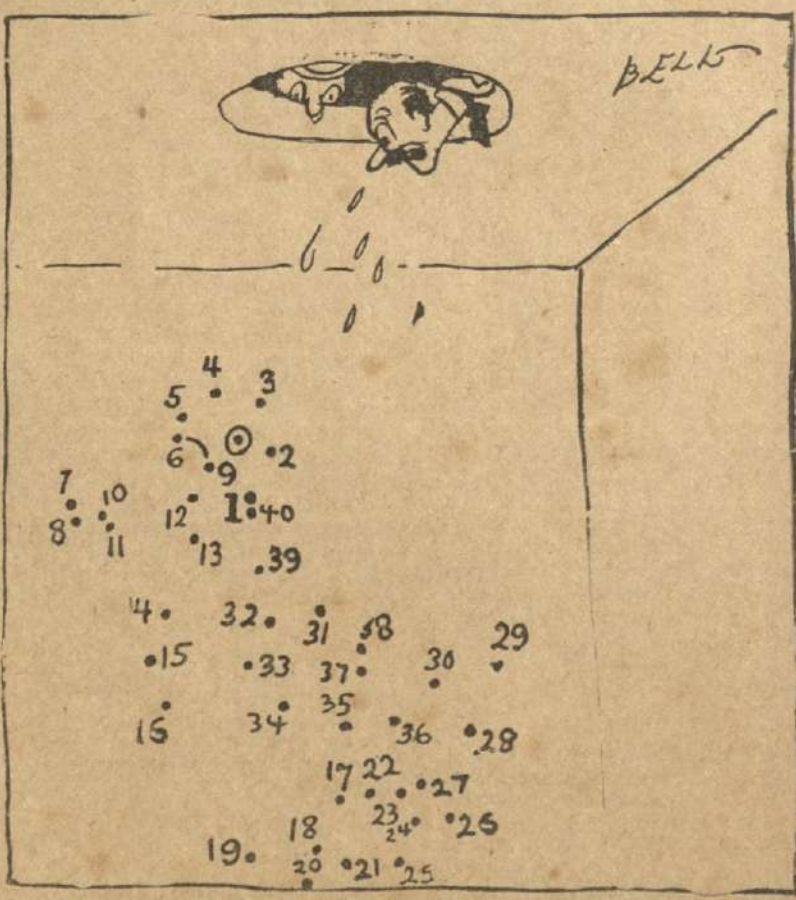 BELL
4
3
5
6
9
2
7
10
8
11
12
1
40
13
39
14
32
31
38
29
15
33
37
30
16
34
35
36
28
17
22
27
23
24
26
18
19
20
21
25